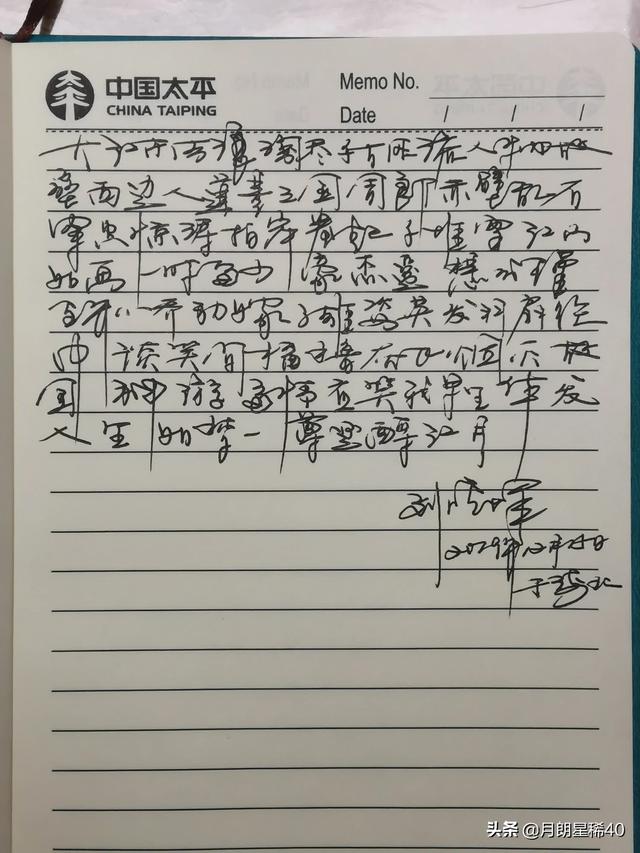 中国太平
CHINA TAIPING
Memo No.
Date / / /
大江东去浪淘尽千古风流人物故
垒西边人道是三国周郎赤壁乱石
穿空惊涛拍岸卷起千堆雪江山
如画一时多少豪杰遥想公瑾
当年小乔初嫁了雄姿英发羽扇纶
巾谈笑间樯橹灰飞烟灭故
国神游多情应笑我早生华发
人生如梦一尊还酹江月
刘
年12月 日
于
头条 @月朗星稀40